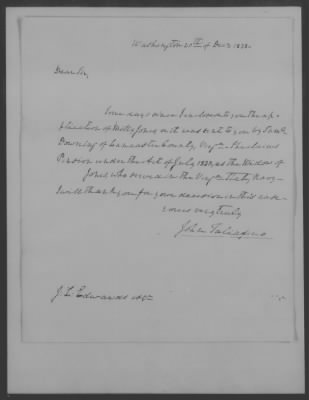 Washington 20th of Decr 1838.
Dear Sir,
Some days since I inclosed to you the ap-
plication of Molly Jones, as it was sent to you by Saml.
Downing of Lancaster County, Virga. She claims
Pension under the Act of July 1838, as the Widow of
Jones, who served in the Virga State Navy—
I will thank you for your decision in this case—
yours very truly
John Taliaferro
J. L. Edwards Esqr